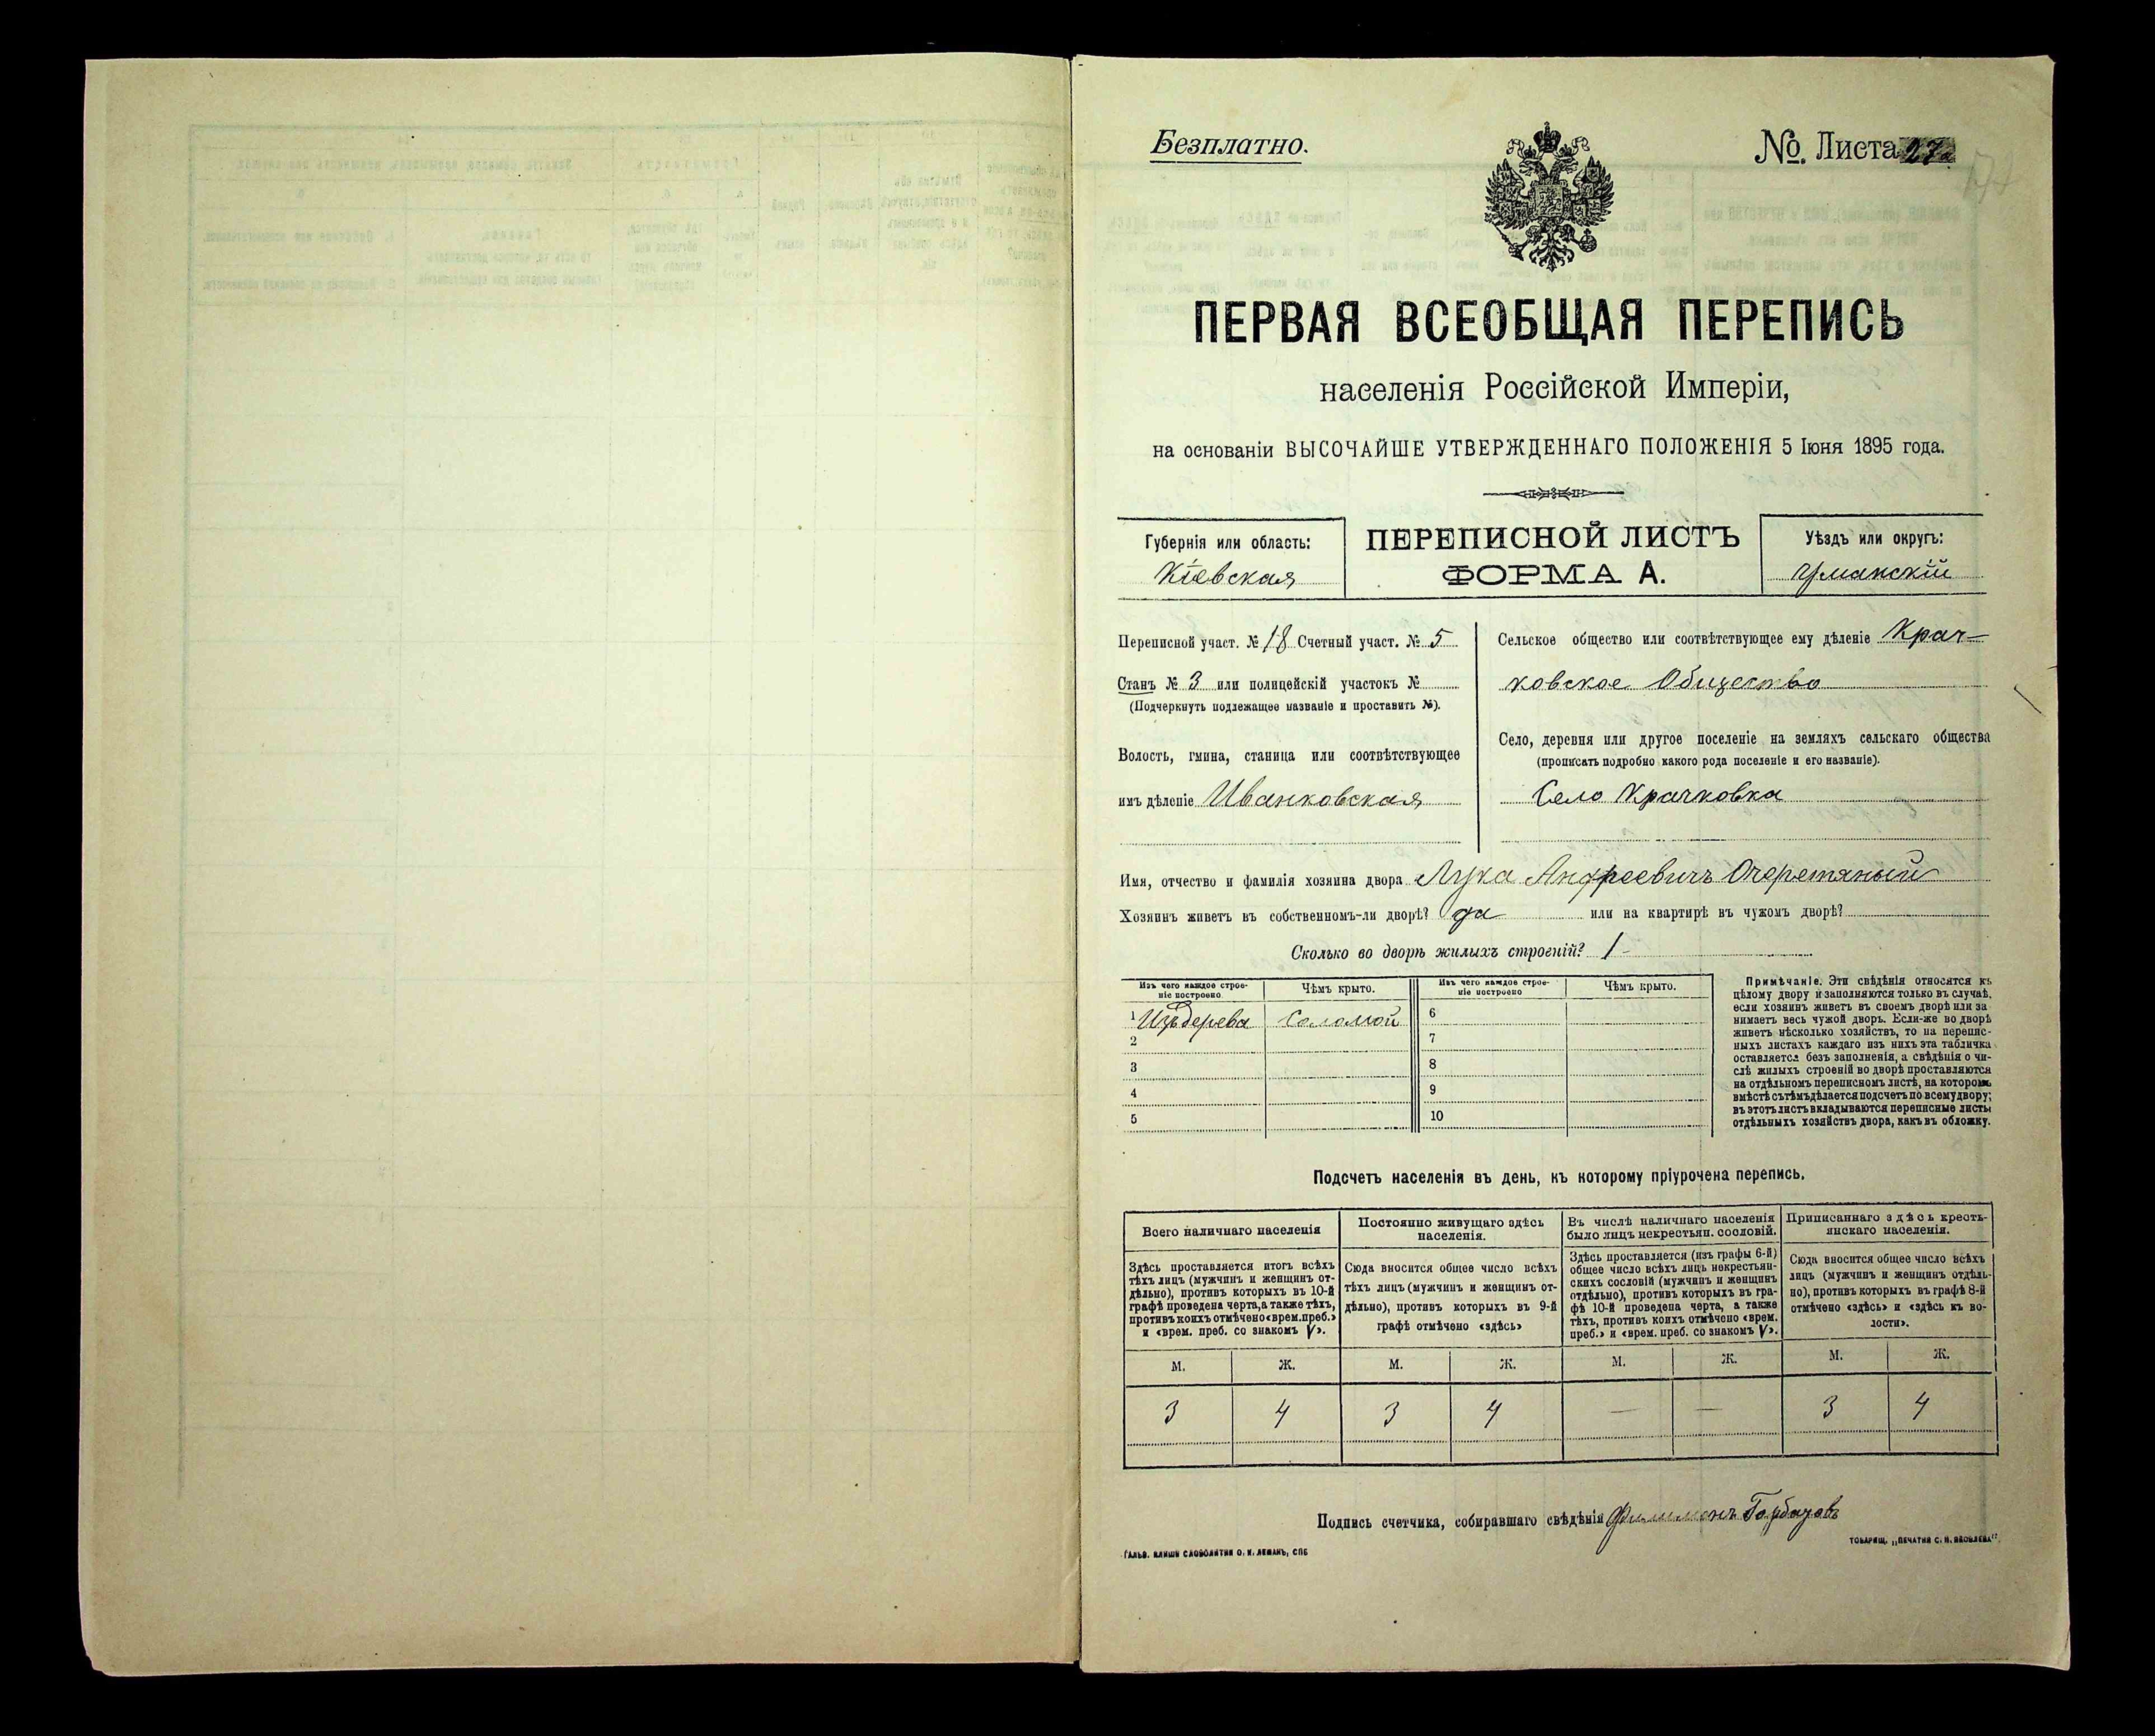 Безплатно.
№. Листа 27а
ПЕРВАЯ ВСЕОБЩАЯ ПЕРЕПИСЬ
населенія Россійской Имперіи,
на основаніи ВЫСОЧАЙШЕ УТВЕРЖДЕННАГО ПОЛОЖЕНІЯ 5 Іюня 1895 года.
Губернія или область:
Кіевская
ПЕРЕПИСНОЙ ЛИСТЪ
ФОРМА А.
Уѣздъ или округъ:
Уманскій
Переписной участ. № 18 Счетный участ. № 5
Станъ № 3 или полицейскій участокъ №
(Подчеркнуть подлежащее названіе и проставить №).
Волость, гмина, станица или соотвѣтствующее
имъ дѣленіе Иванковская
Сельское общество или соотвѣтствующее ему дѣленіе Крач-
ковское Общество
Село, деревня или другое поселеніе на земляхъ сельскаго общества
(прописать подробно какого рода поселеніе и его названіе).
Село Крачковка
Имя, отчество и фамилія хозяина двора Лука Андреевичъ Очеретяный
Хозяинъ живетъ въ собственномъ-ли дворѣ? да или на квартирѣ въ чужомъ дворѣ?
Сколько во дворѣ жилыхъ строеній? 1-
Изъ чего каждое строе-
ніе построено
Чѣмъ крыто.
Изъ чего каждое строе-
ніе построено
Чѣмъ крыто.
1 Изъ дерева Соломой 6
2 7
3 8
4 9
5 10
Примѣчаніе. Эти свѣдѣнія относятся къ
цѣлому двору и заполняются только въ случаѣ,
если хозяинъ живетъ въ своемъ дворѣ или за
нимаетъ весь чужой дворъ. Если-же во дворѣ
живетъ нѣсколько хозяйствъ, то на перепис-
ныхъ листахъ каждаго изъ нихъ эта табличка
оставляется безъ заполненія, а свѣдѣнія о чи-
слѣ жилыхъ строеній во дворѣ проставляются
на отдѣльномъ переписномъ листѣ, на которомъ
вмѣстѣ съ тѣмъ дѣлается подсчетъ по всему двору;
въ этотъ листъ вкладываются переписные листы
отдѣльныхъ хозяйствъ двора, какъ въ обложку.
Подсчетъ населенія въ день, къ которому пріурочена перепись.
Всего наличнаго населенія
Здѣсь проставляется итогъ всѣхъ
тѣхъ лицъ (мужчинъ и женщинъ от-
дѣльно), противъ которыхъ въ 10-й
графѣ проведена черта, а также тѣхъ,
противъ коихъ отмѣчено «врем. преб.»
и «врем. преб. со знакомъ V».
Постоянно живущаго здѣсь
населенія.
Сюда вносится общее число всѣхъ
тѣхъ лицъ (мужчинъ и женщинъ от-
дѣльно), противъ которыхъ въ 9-й
графѣ отмѣчено «здѣсь»
Въ числѣ наличнаго населенія
было лицъ некрестьян. сословій.
Здѣсь проставляется (изъ графы 6-й)
общее число всѣхъ лицъ некрестьян-
скихъ сословій (мужчинъ и женщинъ
отдѣльно), противъ которыхъ въ гра-
фѣ 10-й проведена черта, а также
тѣхъ, противъ коихъ отмѣчено «врем.
преб.» и «врем. преб. со знакомъ V».
Приписаннаго здѣсь кресть-
янскаго населенія.
Сюда вносится общее число всѣхъ
лицъ (мужчинъ и женщинъ отдѣль-
но), противъ которыхъ въ графѣ 8-й
отмѣчено «здѣсь» и «здѣсь къ во-
лости».
М. Ж. М. Ж. М. Ж. М. Ж.
3 4 3 4 — — 3 4
Подпись счетчика, собиравшаго свѣдѣнія Филимонъ Горбачовъ
ГАЛЬВ. КЛИШЕ СЛОВОЛИТНИ О. И. ЛЕМАНЪ, СПБ
ТОВАРИЩ. „ПЕЧАТНЯ С. П. ЯКОВЛЕВА"